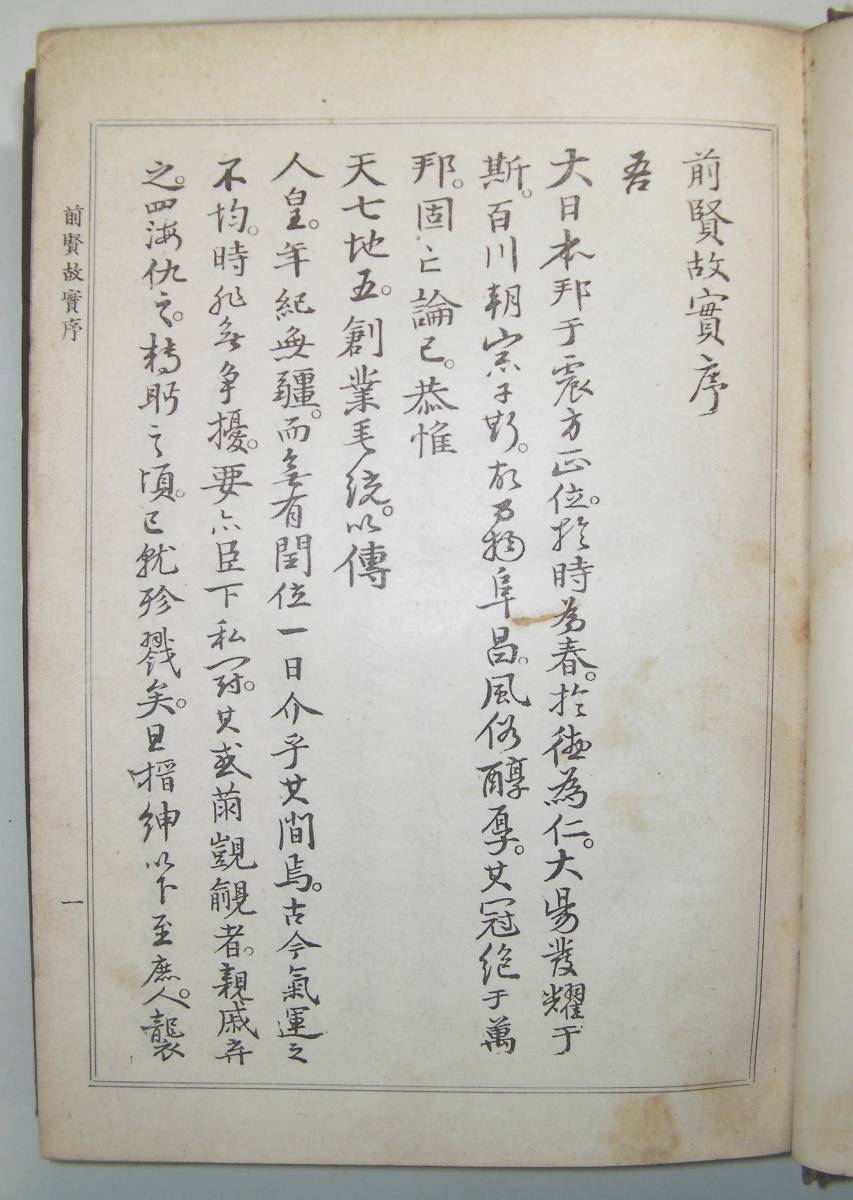 前賢故實序
吾
大日本邦于震方正位。於時為春。於德為仁。大陽發耀于
斯。百川朝宗于斯。故乃物阜昌。風俗醇厚。其冠絶于萬
邦。固亡論已。恭惟
天七地五。創業垂統。以傳
人皇。年紀無疆。而無有閏位一日介乎其間焉。古今氣運之
不均。時非無争擾。要亦臣下私鬪。其或萠覬覦者。親戚弃
之。四海仇之。之頃。已就殄戮矣。且搢紳以下至庶人。襲
前賢故實序
一